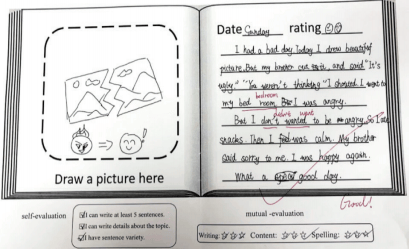 Date Sunday rating
I had a bad day Today I drew beautiful
picture. But my brother cut it, and said "It's
ugly." "You weren't thinking "I shouted. I went to
bedroom
my bed room. I was angry.
didn't want
But I don't wanted to be angry. So I ate
snacks. Then I feel was calm. My brother
said sorry to me. I was happy again.
What a good day.
Good!
Draw a picture here
self-evaluation
I can write at least 5 sentences.
I can write details about the topic.
I have sentence variety.
mutual -evaluation
Writing: ☆☆☆ Content: ☆☆☆ Spelling: ☆☆☆